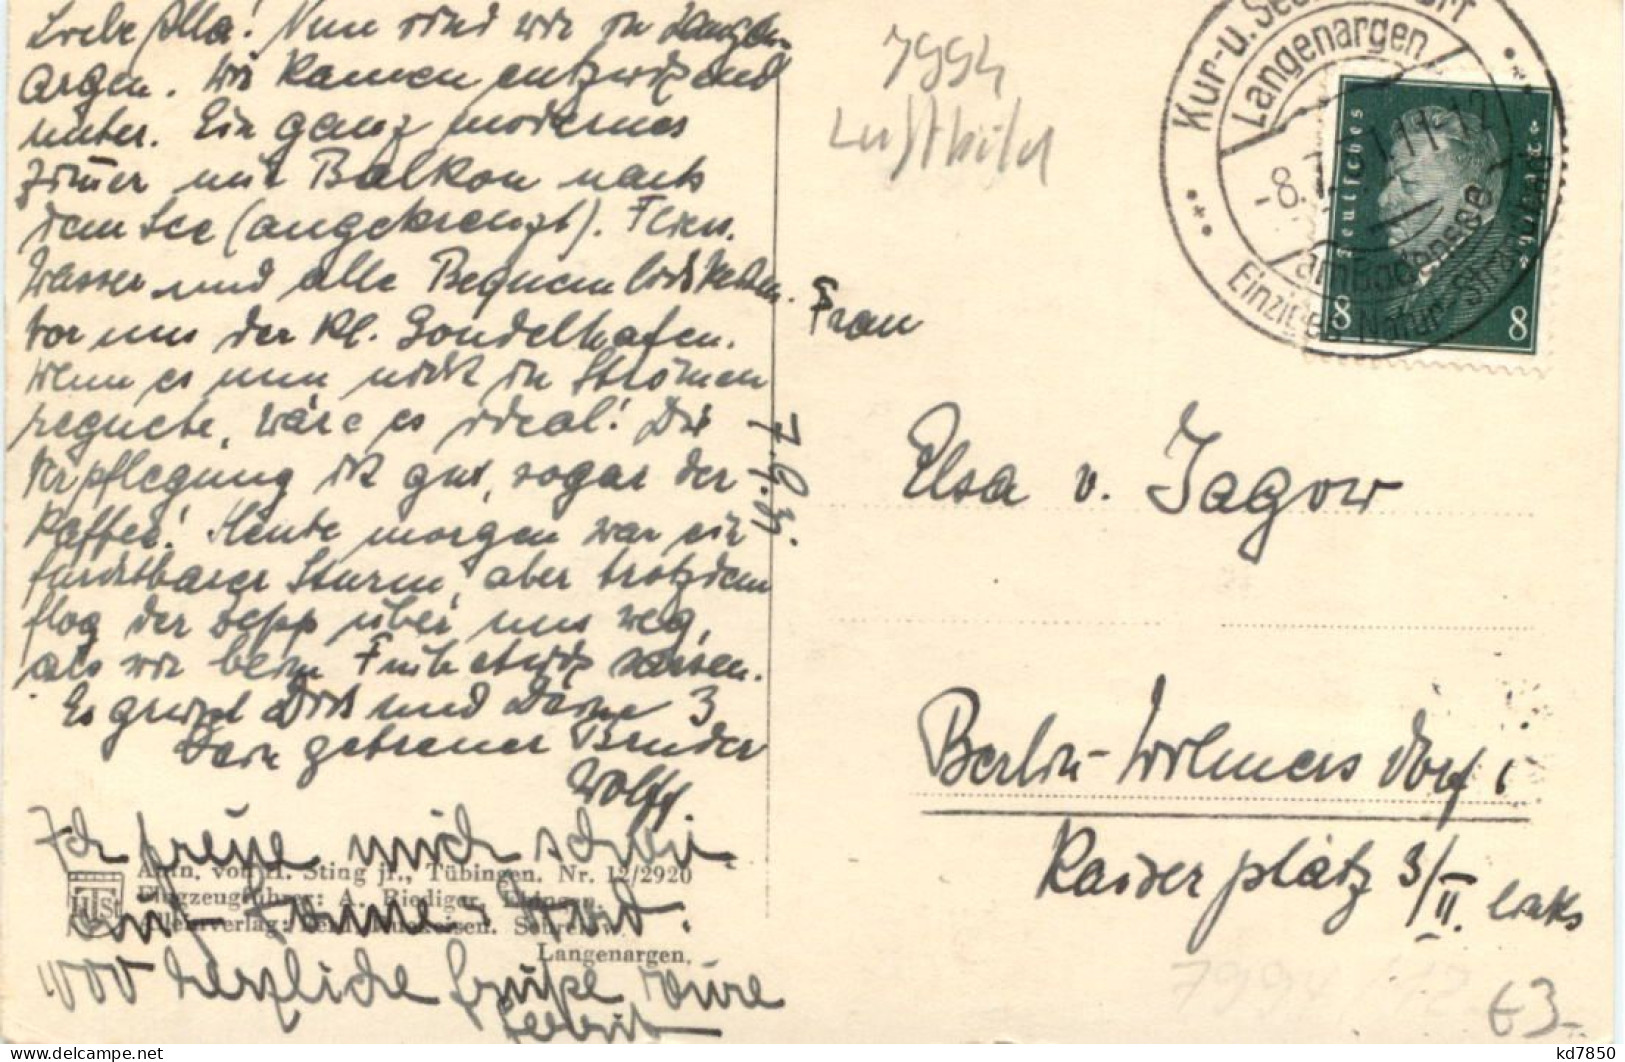 Liebe Illa! Nun sind wir in Langen-
argen. Wir kamen entzückend
unter. Ein ganz modernes
Zimmer mit Balkon nach
dem See (angekreuzt). Fliess.
Wasser und alle Bequemlichkeiten.
Vor uns der kl. Gondelhafen.
Wenn es nun nicht in Strömen
regnete, wäre es ideal! Die
Verpflegung ist gut, sogar der
Kaffee! Heute morgen war ein
furchtbarer Sturm, aber trotzdem
flog der Zepp über uns weg,
als wir beim Frühstück sassen.
Es grüsst Dich und Deine 3
Dein getreuer Bruder
Wolff.
Ich freue mich schon
auf
1000 herzliche Grüße Eure
7.6.31.
Aufn. von H. Sting jr., Tübingen. Nr. 12/2920
Flugzeugführer: A. Riediger,
Alleinverlag:
Langenargen.
HTSt
7994
Luftbild
Kur- u. Seebadeort
Langenargen
am Bodensee
Einziges Natur-Strandbad
Deutsches Reich
8 8
Frau
Elsa v. Jagow
Berlin-Wilmersdorf
Kaiserplatz 3/II. links
7994
€3-
delcampe.net
kd7850